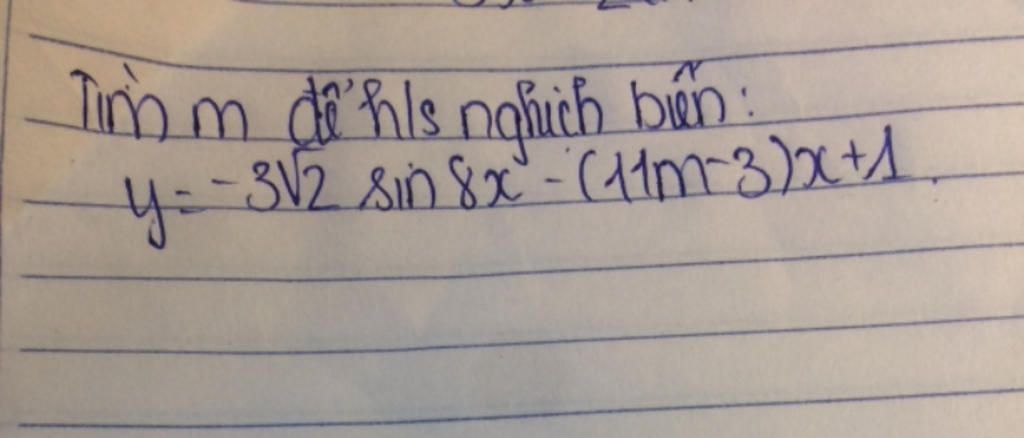 Tìm m để h/s nghịch biến:
y = -3√2 sin 8x - (11m-3)x+1.